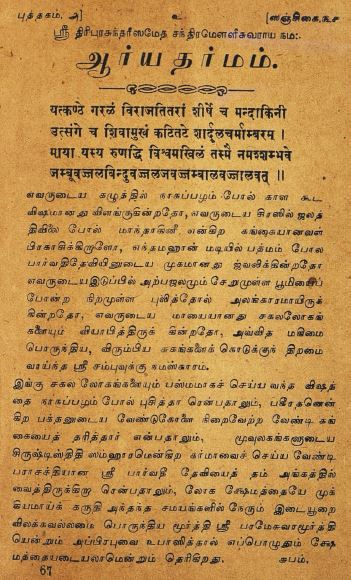 புத்தகம். அ] உ [ஸஞ்சிகை, ௩௪
ஸ்ரீ திரிபுரசுந்தரீஸமேத சக்திரமௌளீசுவராய நம:
ஆர்யதர்மம்.
यत्कण्ठे गरलं विराजतितरां शीर्षे च मन्दाकिनी
उत्संगे च शिवामुखं कटितटे शार्दूलचर्माम्बरम् ।
माया यस्य रुणद्धि विश्वमखिलं तस्मै नमश्शम्भवे
जम्बूवज्जलबिन्दुवज्जलजवज्जम्बालवज्जालवत् ॥
எவருடைய கழுத்தில் நாகப்பழம் போல் கால கூட
விஷமானது விளங்குகின்றதோ, எவருடைய சிரஸில் ஜலத்
திவிலை போல் மாந்தாகினீ என்கிற கங்கையானவள்
பிரகாசிக்கிருளோ, எந்தமஹான் மடியில் பத்மம் போல
பார்வதிதேவியினுடைய முகமானது ஜ்வலிக்கின்றதோ
எவருடையஇடுப்பில் அற்பஜலமும் சேறுமுள்ள பூமியைப்
போன்ற நிறமுள்ள புலித்தோல் அலங்காரமாயிருக்
கின்றதோ, எவருடைய மாயையானது சகலலோகங்
களையும் வியாபித்திருக் கின்றதோ, அவ்வித மகிமை
பொருந்திய, விரும்பிய சுகங்களைக் கொடுக்குந் திறமை
வாய்ந்த ஸ்ரீ சம்புவுக்கு நமஸ்காரம்.
இங்கு சகல லோகங்களையும் பஸ்மமாகச் செய்ய வந்த விஷத்
தை நாகப்பழம் போல் புசித்தா ரென்பதாலும், பகீரதனென்
கிற பக்தனுடைய வேண்டுகோளை நிறைவேற்ற வேண்டி கங்
கையைத் தரித்தார் என்பதாலும், மூவுலகங்களுடைய
சிருஷ்டிஸ்திதி ஸம்ஹாரமென்கிற கர்மாவைச் செய்ய வேண்டி
பராசக்தியான ஸ்ரீ பார்வதீ தேவியைத் தம் அங்கத்தில்
வைத்திருக்கிறா ரென்பதாலும், லோக க்ஷேமத்தையே முக்
கியமாய்க் கருதி அந்தந்த சமயங்களில் நேரும் இடையூறை
விலக்கவல்லமை பொருந்திய மூர்த்தி ஸ்ரீ பரமேசுவரமூர்த்தி
யென்றும் அப்பிரபுவை உபாஸித்தால் எப்பொழுதும் க்ஷே
மத்தையடையலாமென்றும் தெரிகிறது. சுபம்.
67